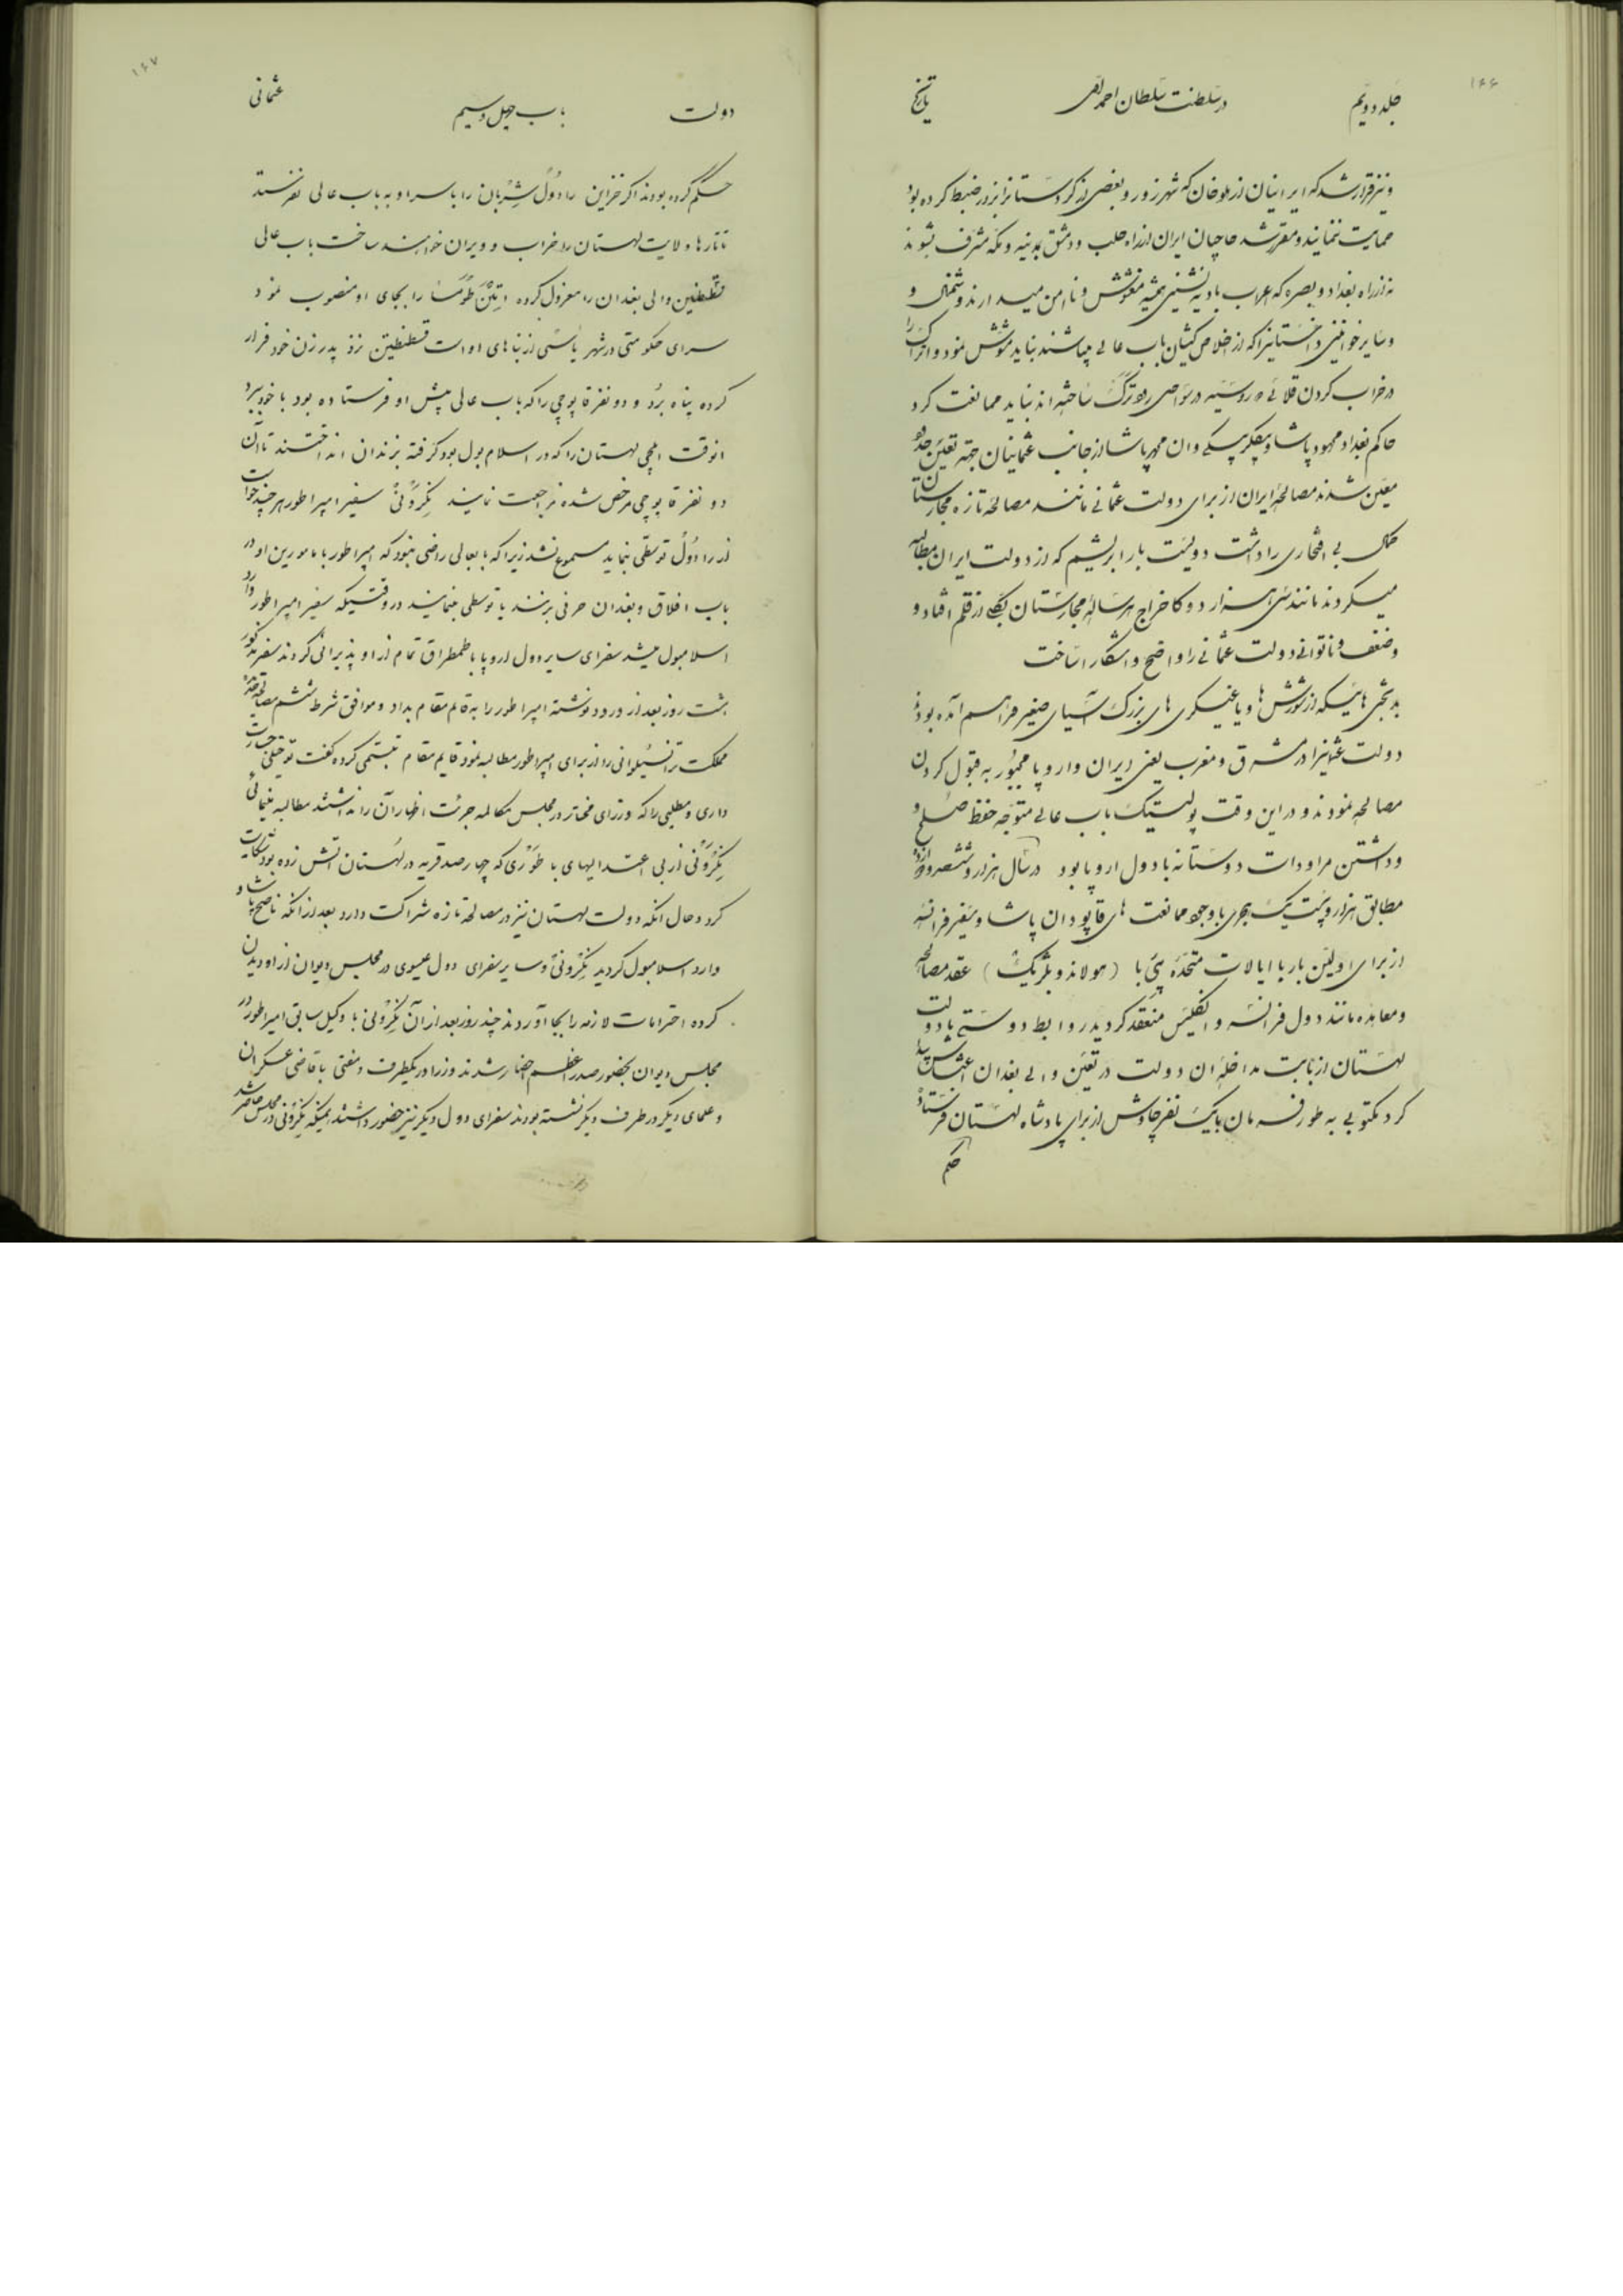 ۱۶۶
جلد دویّم در سلطنت سلطان احمد تاریخ
و نیز قرار شد که ایرانیان از هلوخان که شهرزور و بعضی از کردستانرا بزور ضبط کرده بود
حمایت ننمایند و مقرر شد حاجیان ایران از راه حلب و دمشق بمدینه و مکه مشرف بشوند
نه از راه بغداد و بصره که اعراب بادیه نشین همیشه مغشوش و ناامن میدارند و شمخال و
و سایر خوانین داغستانیرا که از اخلاص کیشان باب عالی میباشند نباید مشوش نمود و اتراک را
در خراب کردن قلاعی که روسیه در نواحی رود ترک ساخته اند نباید ممانعت کرد
حاکم بغداد محمود پاشا و بیکلربیکی وان محمد پاشا از جانب عثمانیان جهة تعیین حدود
معین شدند مصالحهٔ ایران از برای دولت عثمانی مانند مصالحهٔ تازه مجارستان
کمال بی افتخاری را داشت دویست بار ابریشم که از دولت ایران مطالبه
میکردند مانند سی هزار دوکا خراج هر سالهٔ مجارستان بکلی از قلم افتاد و
و ضعف و ناتوانی دولت عثمانی را واضح و آشکار ساخت
بدبختی هائیکه از شورش ها و یاغیگری های بزرگ آسیای صغیر فراهم آمده بود
دولت عثمانیرا در مشرق و مغرب یعنی ایران و اروپا مجبور به قبول کردن
مصالحه نمودند و در این وقت پولیتیک باب عالی متوجه حفظ صلح و
و داشتن مراودات دوستانه با دول اروپا بود در سال هزار و ششصد و دوازده
مطابق هزار و بیست یک هجری با وجود ممانعت های قاپودان پاشا و سفیر فرانسه
از برای اولین بار با ایالات متحدهٔ پئی با (هولاند و بلژیک) عقد مصالحه
و معاهده مانند دول فرانسه و انگلیس منعقد کردید روابط دوستی با دولت
لهستان از بابت مداخلهٔ ان دولت در تعیین والی بغدان اغتشاش پیدا
کرد مکتوبی به طور فرمان با یک نفر چاوش از برای پادشاه لهستان فرستاد
حکم
۱۶۷
دولت باب چهل و سیم عثمانی
حکم کرده بودند اکر خزاین رادول شربان را با سر او به باب عالی نفرستد
تاتارها ولایت لهستان را خراب و ویران خواهند ساخت باب عالی
قسطنطین والی بغدان را معزول کرده اتین طومسا را بجای او منصوب نمود
سرای حکومتی در شهر یاسی از بناهای او است قسطنطین نزد پدر زن خود فرار
کرده پناه برد و دو نفر قاپوچی را که باب عالی پیش او فرستاده بود با خود ببرد
انوقت ایلچی لهستان را که در اسلامبول بود کرفته بزندان انداختند تا آن
دو نفر قاپوچی مرخص شده مراجعت نمایند نگرونی سفیر امپراطور هر چند خواست
از رادول توسطی بنماید مسموع نشد زیرا که بابعالی راضی نبود که امپراطور یا مامورین او در
باب افلاق و بغدان حرفی بزنند یا توسطی بنمایند در وقتیکه سفیر امپراطور وارد
اسلامبول میشد سفرای سایر دول اروپا با طمطراق تمام از او پذیرائی کردند سفیر مذکور
هشت روز بعد از ورود نوشتهٔ امپراطور را به قایم مقام بداد و موافق شرط ششم مصالحهٔ
مملکت ترانسیلوانی را از برای امپراطور مطالبه نمود قایم مقام تبسمی کرده کفت تو خیلی جسارت
داری و مطلبی را که وزرای مختار در مجلس مکالمه جرئت اظهار آن را نداشتند مطالبه مینمائی
نگرونی از بی اعتدالیهای باطوری که چهارصد قریه در لهستان اتش زده بود شکایت
کرد و حال انکه دولت لهستان نیز در مصالحهٔ تازه شراکت دارد بعد از انکه ناصح پاشا و
وارد اسلامبول کردید نگرونی و سایر سفرای دول عیسوی در مجلس دیوان از او دیدن
کرده احترامات لازمه را بجا آوردند چند روز بعد از آن نگرونی با وکیل سابق امپراطور در
مجلس دیوان بحضور صدر اعظم احضار شدند وزرا در یکطرف و مفتی با قاضی عسکران
و علمای دیکر در طرف دیکر نشسته بودند سفرای دول دیکر نیز حضور داشتند همینکه نگرونی در مجلس حاضر شد